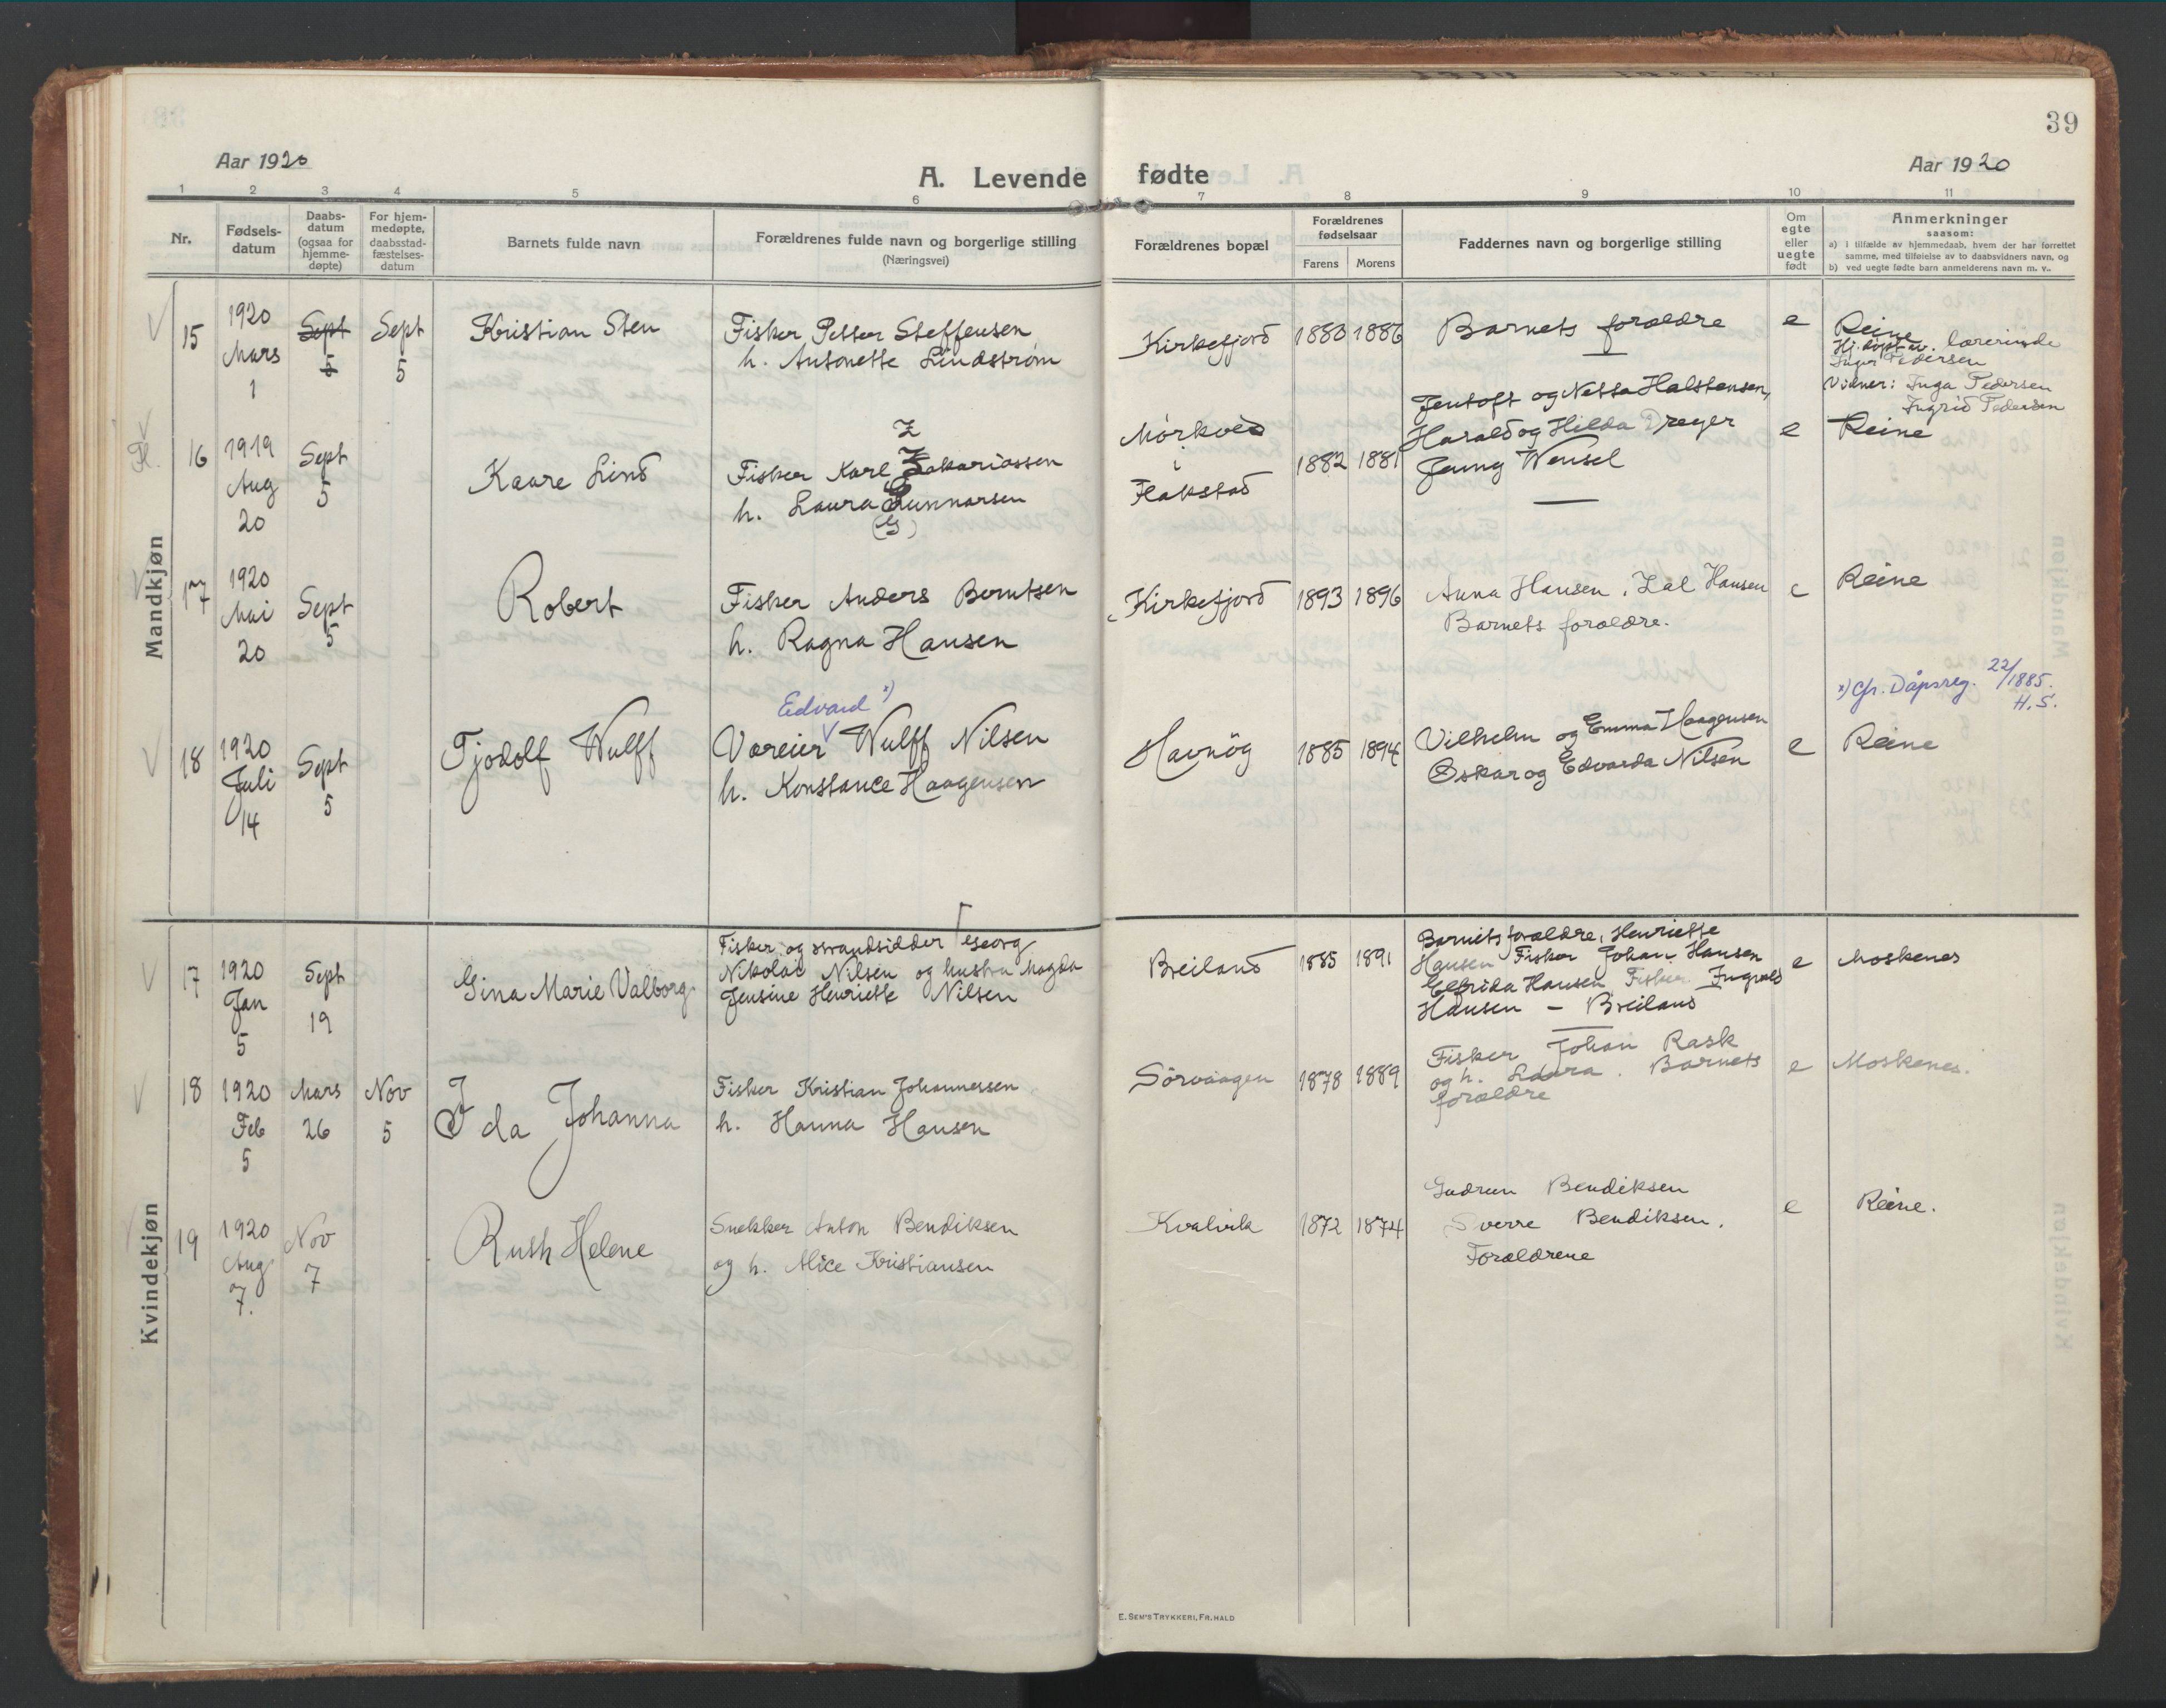 39
Aar 1920
A. Levende fødte
Aar 1920
1 2 3 4 5 6 7 8 9 10 11
Nr.
Fødsels-
datum
Daabs-
datum
(ogsaa for
hjemme-
døpte)
For hjem-
medøpte,
daabsstad-
fæstelses-
datum
Barnets fulde navn
Forældrenes fulde navn og borgerlige stilling
(Næringsvei)
Forældrenes bopæl
Forældrenes
fødselsaar
Farens Morens
Faddernes navn og borgerlige stilling
Om
egte
eller
uegte
født
Anmerkninger
saasom:
a) i tilfælde av hjemmedaab, hvem der har forrettet
samme, med tilføielse av to daabsvidners navn, og
b) ved uegte fødte barn anmelderens navn m. v..
Mandkjøn
15
1920
Mars
1
Sept
5
Sept
5
Kristian Sten
Fisker Petter Steffensen
h. Antonette Lindstrøm
Kirkefjord
1880 1886
Barnets forældre
e
Reine
Hj. døpt av. lærerinde
Inger Pedersen
Vidner: Inga Pedersen
Ingrid Pedersen
16
1919
Aug
20
Sept
5
Kaare Lind
Z
Fisker Karl Zakariassen
h. Laura Gunnarsen
(G)
Mörkved
i
Flakstad
1882 1881
Jentoft og Netta Halstensen,
Harald og Hilda Dreyer
Jenny Wensel
e
Reine
17
1920
Mai
20
Sept
5
Robert
Fisker Anders Berntsen
h. Ragna Hansen
Kirkefjord
1893 1896
Anna Hansen, Lal Hansen
Barnets forældre.
e
Reine
18
1920
Juli
14
Sept
5
Tjodolf Wulff
Edvard x)
Vareier Wulff Nilsen
h. Konstance Haagensen
Havnög
1885 1894
Vilhelm og Emma Haagensen
Oskar og Edvarda Nilsen
e
x) Cfr. Dåpsreg. 22/1885.
H. S.
Reine
Kvindekjøn
17
1920
Jan
5
Sept
19
Gina Marie Valborg.
Fisker og strandsidder Georg
Nikolai Nilsen og hustru Magda
Jensine Henriette Nilsen
Breiland
1885 1891
Barnets forældre, Henriette
Hansen Fisker Johan Hansen
Elfrida Hansen Fisker Ingvald
Hansen – Breiland
e
Moskenes
18
1920
Feb
5
Mars
26
Nov
5
Ida Johanna
Fisker Kristian Johannessen
h. Hanna Hansen
Sörvaagen
1878 1889
Fisker Johan Rask
og h. Laura. Barnets
forældre
e
Moskenes.
19
1920
Aug
7.
Nov
7
Ruth Helene
Snekker Anton Bendiksen
og h. Alice Kristiansen
Kvalvik
1872 1874
Gudrun Bendiksen
Sverre Bendiksen.
Forældrene
e
Reine.
E. SEM'S TRYKKERI, FR. HALD